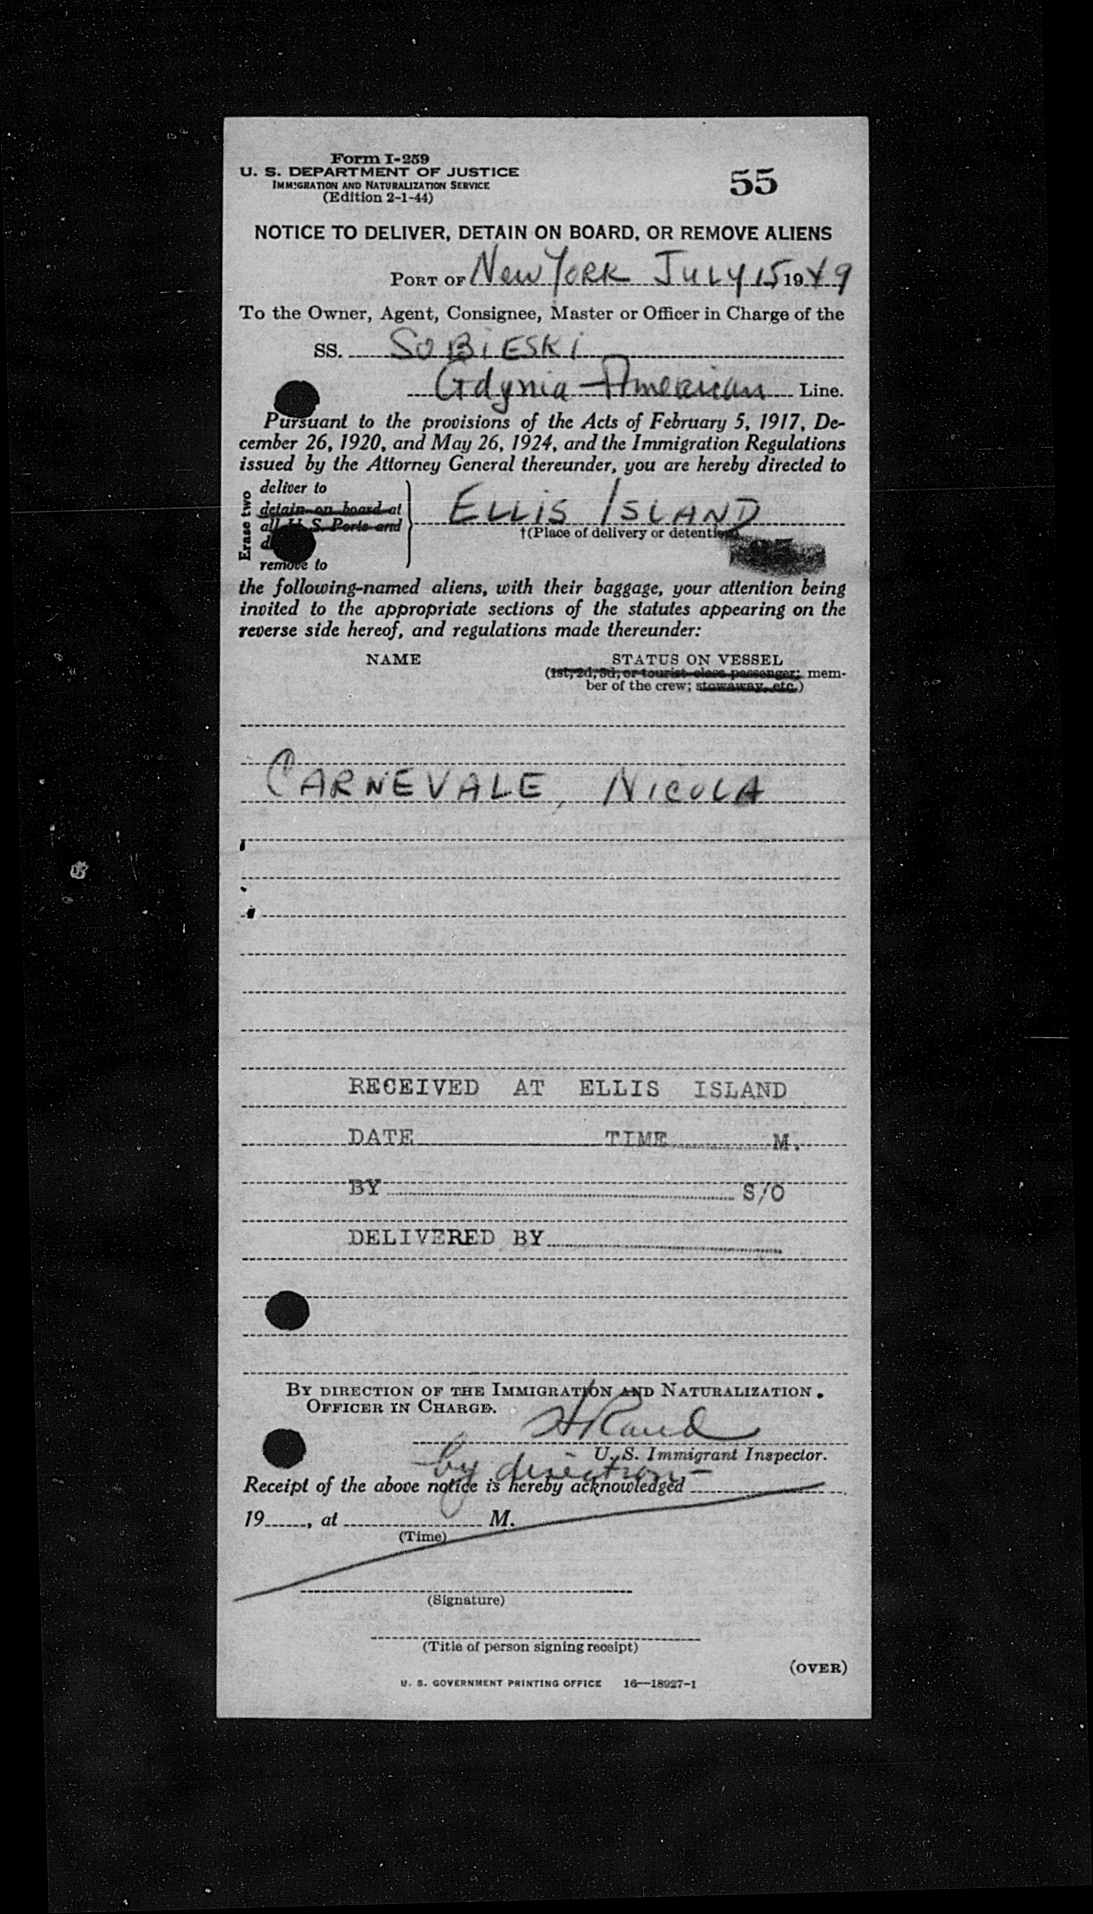 Form I-259
U. S. DEPARTMENT OF JUSTICE
IMMIGRATION AND NATURALIZATION SERVICE
(Edition 2-1-44)
55
NOTICE TO DELIVER, DETAIN ON BOARD, OR REMOVE ALIENS
PORT OF New York July 15 1949
To the Owner, Agent, Consignee, Master or Officer in Charge of the
SS. SOBIESKI
Gdynia-American Line.
Pursuant to the provisions of the Acts of February 5, 1917, De-
cember 26, 1920, and May 26, 1924, and the Immigration Regulations
issued by the Attorney General thereunder, you are hereby directed to
Erase two
deliver to
detain on board at
all U. S. Ports and
remove to
ELLIS ISLAND
†(Place of delivery or detention)
the following-named aliens, with their baggage, your attention being
invited to the appropriate sections of the statutes appearing on the
reverse side hereof, and regulations made thereunder:
NAME STATUS ON VESSEL
(1st, 2d, 3d, or tourist class passenger; mem-
ber of the crew; stowaway, etc.)
CARNEVALE, NICOLA
RECEIVED AT ELLIS ISLAND
DATE TIME M.
BY S/O
DELIVERED BY
BY DIRECTION OF THE IMMIGRATION AND NATURALIZATION
OFFICER IN CHARGE.
U. S. Immigrant Inspector.
by direction -
Receipt of the above notice is hereby acknowledged
19 , at M.
(Time)
(Signature)
(Title of person signing receipt)
(OVER)
U. S. GOVERNMENT PRINTING OFFICE 16—18927-1